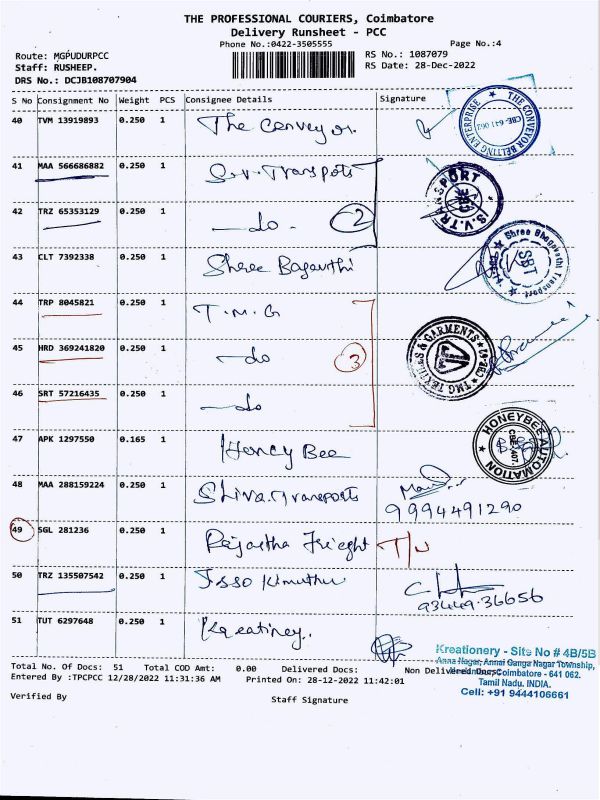 THE PROFESSIONAL COURIERS, Coimbatore
Delivery Runsheet - PCC
Phone No.:0422-3505555
Page No.:4
Route: MGPUDURPCC
RS No.: 1087079
Staff: RUSHEEP.
RS Date: 28-Dec-2022
DRS No.: DCJB108707904
S No Consignment No Weight PCS Consignee Details Signature
40 TVM 13919893 0.250 1 The Conveyor.
THE CONVEYOR BELTING ENTERPRISE CBE-641 062
41 MAA 566686882 0.250 1 S.V. Transports
S.V. TRANSPORT
42 TRZ 65353129 0.250 1 —do - 2
43 CLT 7392338 0.250 1 Shree Bagavthi
Shree Bhagavathi Transport SBT
44 TRP 8045821 0.250 1 T.M.G
45 HRD 369241820 0.250 1 —do 3
TMG TEXTILES & GARMENTS
46 SRT 57216435 0.250 1 —do
47 APK 1297550 0.165 1 Honey Bee
HONEYBEE AUTOMATION CBE 407.
48 MAA 288159224 0.250 1 Shiva Transports
9994491290
49 SGL 281236 0.250 1 Rajastha Frieght
50 TRZ 135507542 0.250 1
93449.36656
51 TUT 6297648 0.250 1
Kreationery - Site No # 4B/5B
Anna Nagar, Annai Ganga Nagar Township,
Coimbatore - 641 062.
Tamil Nadu. INDIA.
Cell: +91 9444106661
Total No. Of Docs: 51 Total COD Amt: 0.00 Delivered Docs: Non Delivered Docs:
Entered By :TPCPCC 12/28/2022 11:31:36 AM Printed On: 28-12-2022 11:42:01
Verified By Staff Signature